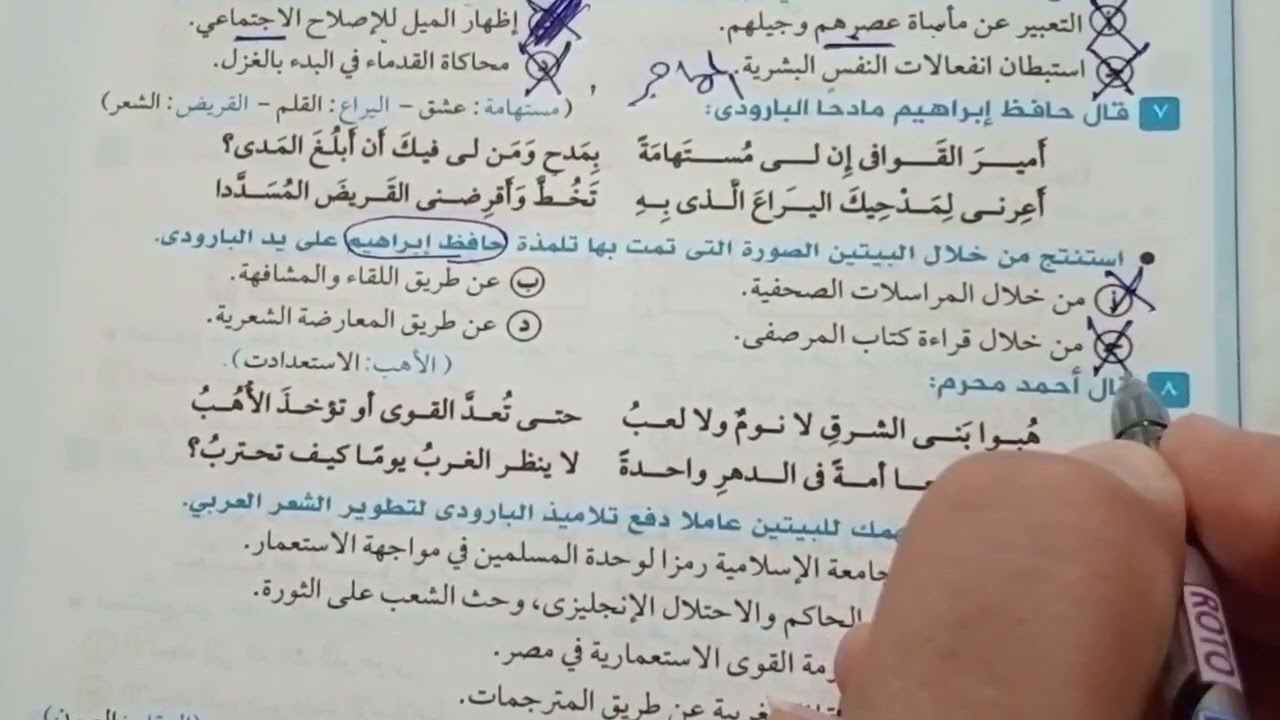 أ التعبير عن مأساة عصرهم وجيلهم.
إظهار الميل للإصلاح الاجتماعي.
استبطان انفعالات النفس البشرية.
د محاكاة القدماء في البدء بالغزل.
٧ قال حافظ إبراهيم مادحا البارودى:
(مستهامة: عشق - اليراع: القلم - القريض: الشعر)
أَميرَ القَوافى إِن لى مُستَهامَةً بِمَدحٍ وَمَن لى فيكَ أَن أَبلُغَ المَدى؟
أَعِرنى لِمَدْحِيكَ اليَراعَ الَّذى بِهِ تَخُطُّ وَأَقرِضنى القَريضَ المُسَدَّدا
• استنتج من خلال البيتين الصورة التى تمت بها تلمذة حافظ إبراهيم على يد البارودى.
أ من خلال المراسلات الصحفية.
ب عن طريق اللقاء والمشافهة.
ج من خلال قراءة كتاب المرصفى.
د عن طريق المعارضة الشعرية.
٨ قال أحمد محرم:
(الأهب: الاستعدادت).
هُبوا بَنى الشرقِ لا نومٌ ولا لعبُ حتى تُعدَّ القوى أو تؤخذَ الأُهُبُ
أمةً فى الدهرِ واحدةً لا ينظر الغربُ يومًا كيف تحتربُ؟
للبيتين عاملا دفع تلاميذ البارودى لتطوير الشعر العربي.
الإسلامية رمزا لوحدة المسلمين في مواجهة الاستعمار.
الحاكم والاحتلال الإنجليزى، وحث الشعب على الثورة.
القوى الاستعمارية في مصر.
عن طريق المترجمات.
ROTO